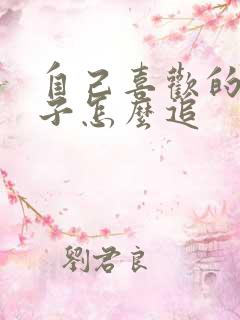 自己喜歡的
子怎麼追
劉君良